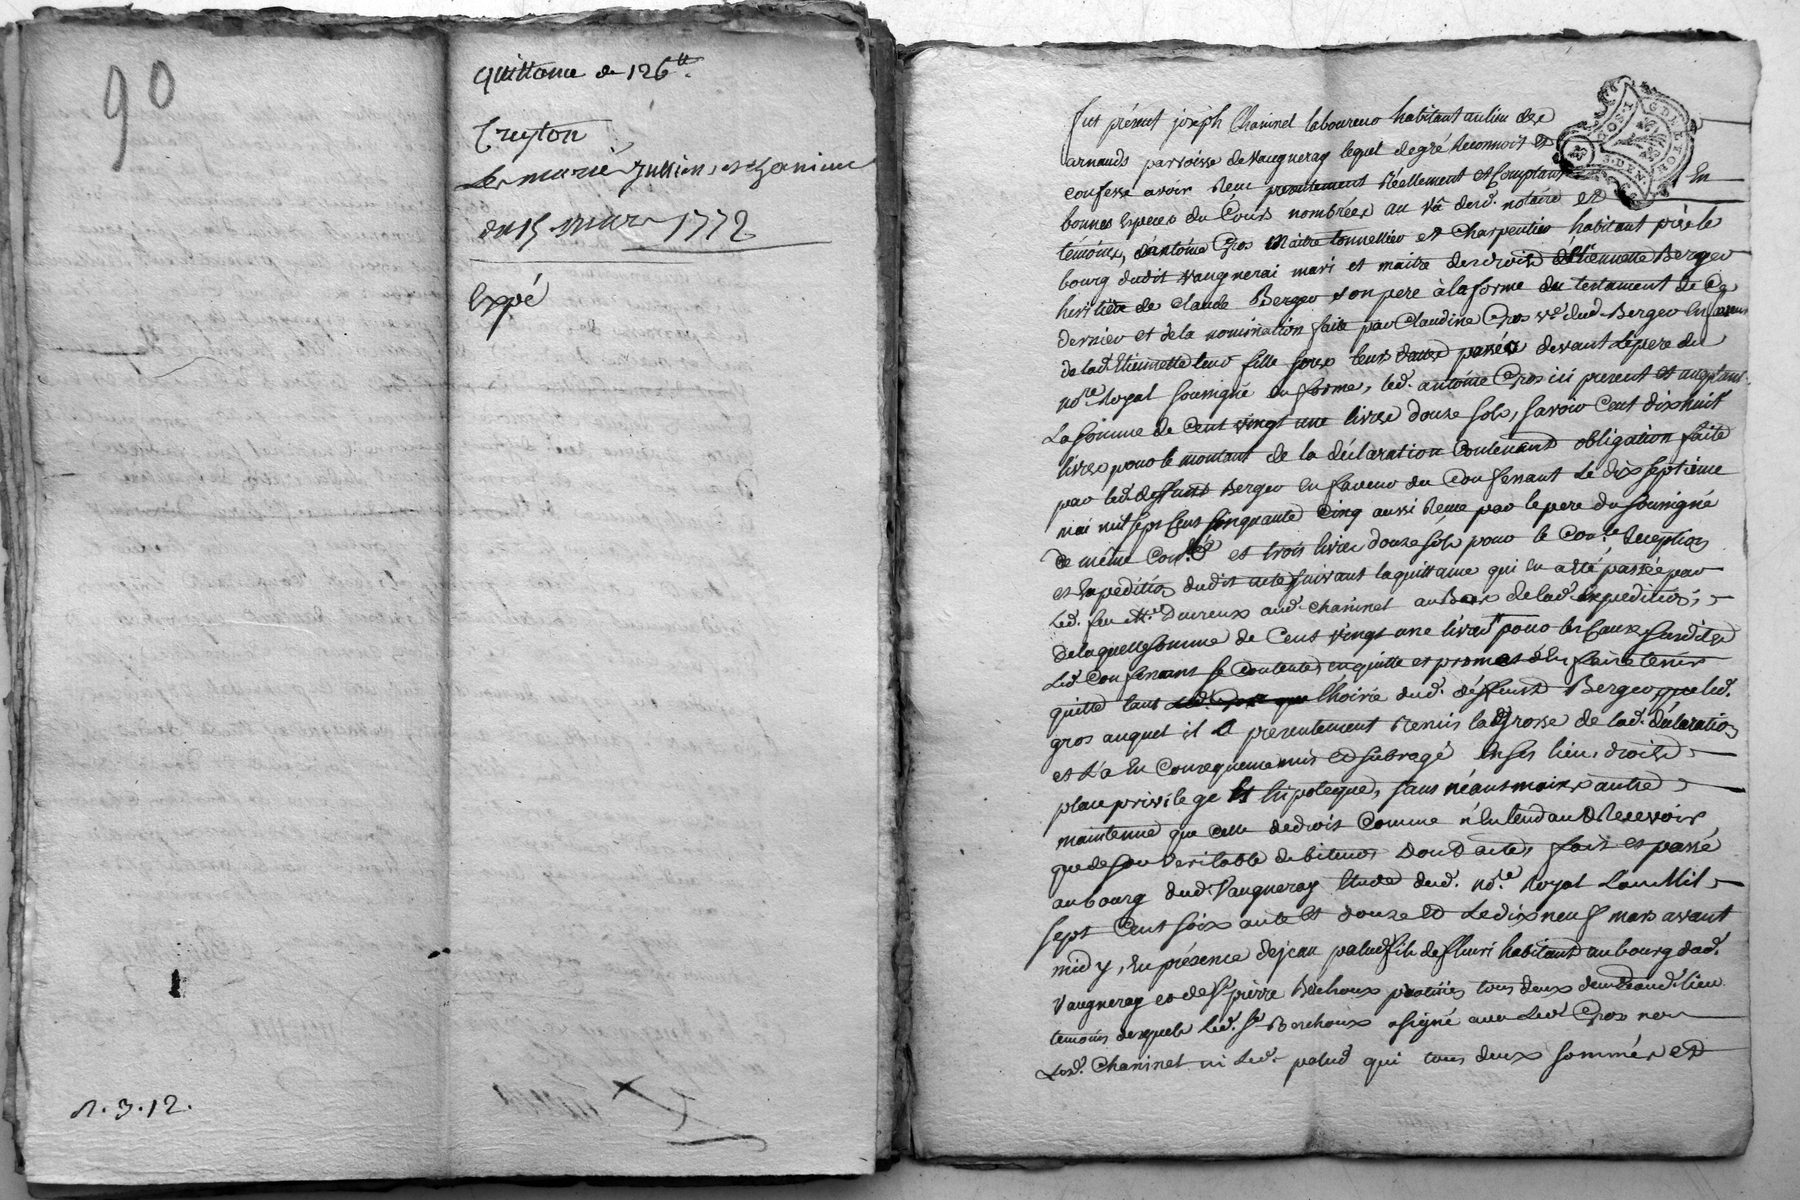 90
Quittance de 126tt.
Creyton
Les mariés Jullien, et Chanine
du 15 mars 1772
Expé
n. 3. 12.
G DE LYON
3. DEN
Fut présent joseph Chaninel laboureur habitant au lieu des
arnauds parroisse de Vaugneray lequel de gré Reconnoit et
confesse avoir Reçu presentement Réellement et Comptant En
bonnes Especes du Cours nombrées au vû dud. notaire et
témoins, d'antoine Gros Maitre tonnellier et Charpentier habitant près le
bourg dudit Vaugnerai mari et maitre des droits d'Etiennette Berger
heritière de Claude Berger son pere à la forme du testament de Ce
dernier et de la nomination faite par Claudine Gros ve dud. Berger En faveur
de lad. Etiennette leur fille sous leurs dattes passés devant le pere du
nore Royal soussigné En forme, led. antoine Gros ici present et acceptant
La somme de Cent vingt une livres douze sols, savoir Cent dix huit
livres pour le montant de la déclaration Contenant obligation faite
par led. deffunt Berger En faveur du Confessant Le dix septième
mai mil sept Cent Cinquante Cinq aussi Reçue par le pere du soussigné
de même Con.lée et trois livres douze sols pour le Con.le Reception
et Expedition dudit acte suivant la quittance qui En a été passée par
Led. feu Me. aud. Chaninel au Bas de lad. Expedition,
de laquelle somme de Cent vingt une livres pour les Causes susdites
Led. Confessant se Contente, En quitte et promet d'En faire tenir
quitte tant l'hoirie dud. déffunt Berger que led.
gros auquel il a presentement Remis la Grosse de lad. déclaration
et l'a En Consequence mis et subrogé En ses lieu, droits
place privilege et hipoteque, sans néansmoins autre
maintenue que Celle de droit Comme n'Entendant Recevoir
que de son veritable debiteur Dont acte, fait et passé
au bourg dud. Vaugneray Etude dud. nore Royal L'an Mil
sept Cent soixante et douze et Le dix neuf mars avant
midy, En présence de jean palud fils de fleuri habitant au bourg dud.
Vaugneray et de Sr pierre Berchoux tous deux dud. lieu
temoins desquels led. Sr Berchoux a signé avec Led. Gros non
Led. Chaninel ni Led. palud qui tous deux sommés et